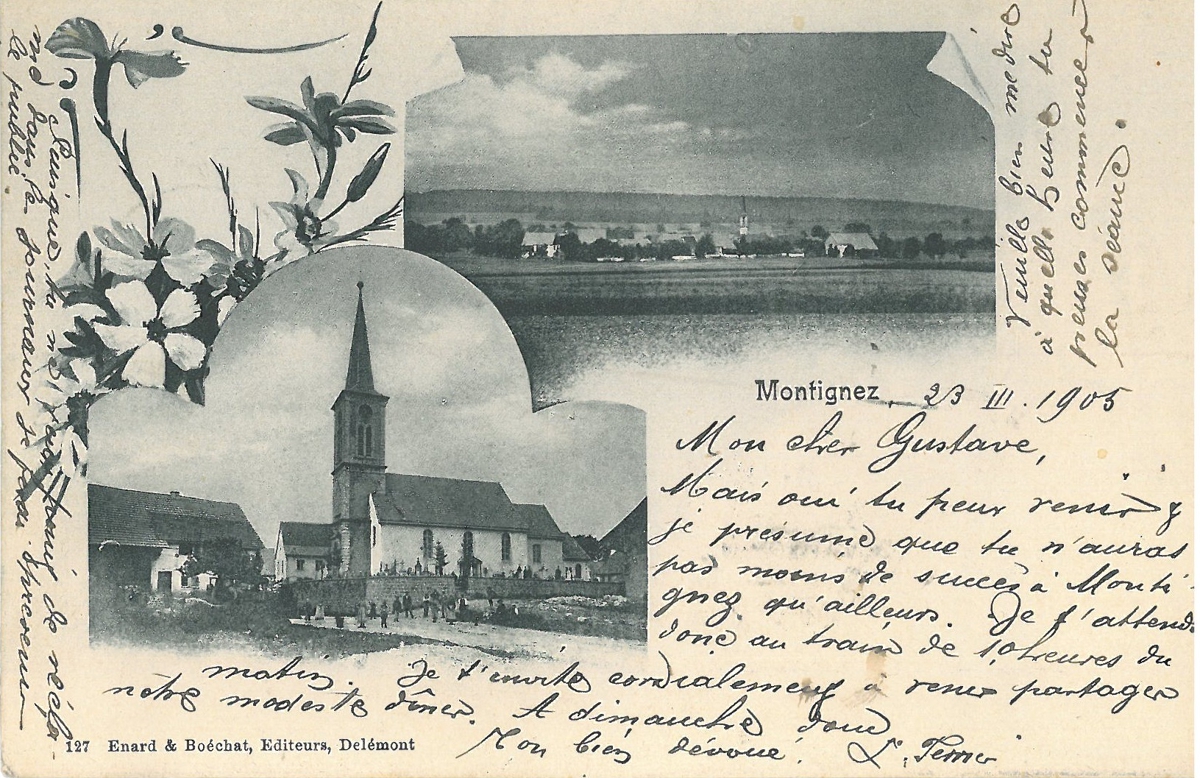 Montignez, 23 III. 1905
Mon cher Gustave,
Mais oui tu peux venir &
je présume que tu n'auras
pas moins de succès à Monti-
gnez qu'ailleurs. Je t'attends
donc au train de 10 heures du
matin. Je t'invite cordialement à venir partager
notre modeste dîner. A dimanche donc
Ton bien dévoué.
Veuille bien me dire
à quelle heure tu
penses commencer
la séance.
Puisque tu m'
de récép-
mé dans le journaux je peux
le public.
127 Enard & Boéchat, Editeurs, Delémont